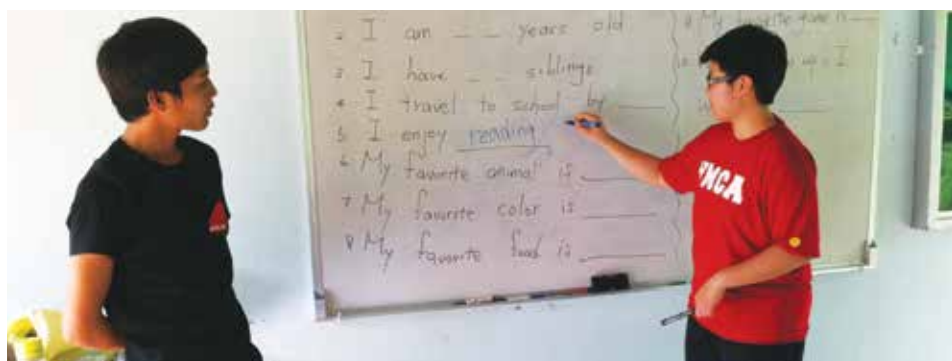 2 I am _ _ years old
3 I have _ _ siblings
4 I travel to school by ____
5 I enjoy reading
6 My favorite animal is ____
7 My favorite color is ____
8 My favorite food is ____
9 My favorite is
up I
YMCA